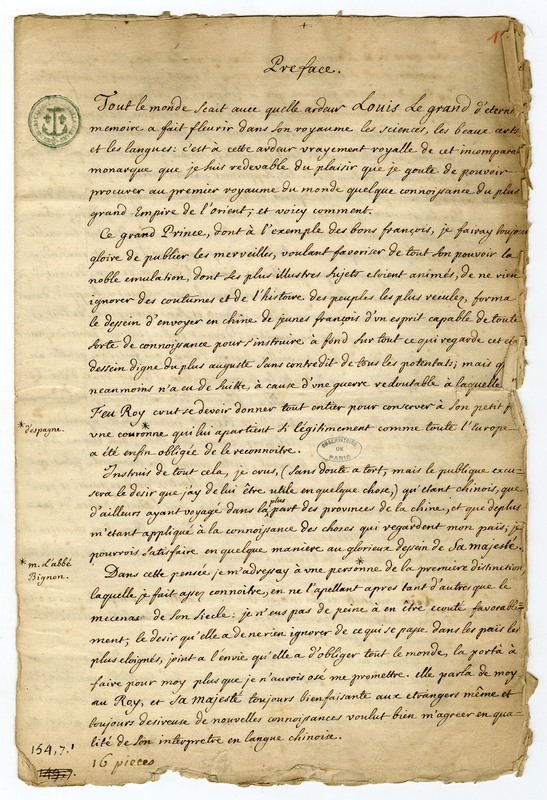 15.
Preface.
Tout le monde scait avec quelle ardeur Louis Le grand d'eterne
memoire a fait fleurir dans son royaume les sciences, les beaux arts
et les langues: c'est à cette ardeur vrayement royalle de cet incompara
monarque que je suis redevable du plaisir que je goute de pouvoir
procurer au premier royaume du monde quelque connoissance du plus
grand Empire de l'orient; et voicy comment.
Ce grand Prince, dont à l'exemple des bons françois, je fairay toujou
gloire de publier les merveilles, voulant favoriser de tout son pouvoir la
noble emulation, dont ses plus illustres sujets etoient animés, de ne rien
ignorer des coutumes et de l'histoire des peuples les plus reculez, forma
le dessein d'envoyer en chine de jeunes françois d'vn esprit capable de toute
sorte de connoissance pour s'instruire à fond sur tout ce qui regarde cet
dessein digne du plus auguste sans contredit de tous les potentats; mais q
neanmoins n'a eu de suitte, à cause d'vne guerre redoutable à laquelle
Feu Roy crut se devoir donner tout entier pour conserver à son petit f
*d'espagne.
vne couronne* qui lui apartient si légitimement comme toute l'Europe
a été enfin obligée de la reconnoitre.
OBSERVATOIRE DE PARIS
Instruis de tout cela, je crus, (sans doute a tort, mais le publique excu-
sera le desir que j'ay de lui être utile en quelque chose,) qu'etant chinois, que
d'ailleurs ayant voyagé dans la plus part des provinces de la chine, et que deplus
m'etant appliqué à la connoissance des choses qui regardent mon païs; je
pourrois satisfaire en quelque manière au glorieux dessein de Sa majesté.
*m. l'abbé
Bignon.
Dans cette pensée je m'adressay à vne personne* de la premiere distinction
laquelle je fait assez connoitre, en ne l'apellant apres tant d'autres que le
mecenas de son siecle: je n'eus pas de peine à en être ecouté favorable-
ment; le desir qu'elle a de ne rien ignorer de ce qui se passe dans les païs les
plus eloignés, joint a l'envie qu'elle a d'obliger tout le monde, la porta à
faire pour moy plus que je n'aurois osé me promettre. elle parla de moy
au Roy, et sa majesté toujours bienfaisante aux etrangers même et
toujours desireuse de nouvelles connoissances voulut bien m'agreer en qua-
lité de son interpretre en langue chinoise.
154,7.1
16 pieces